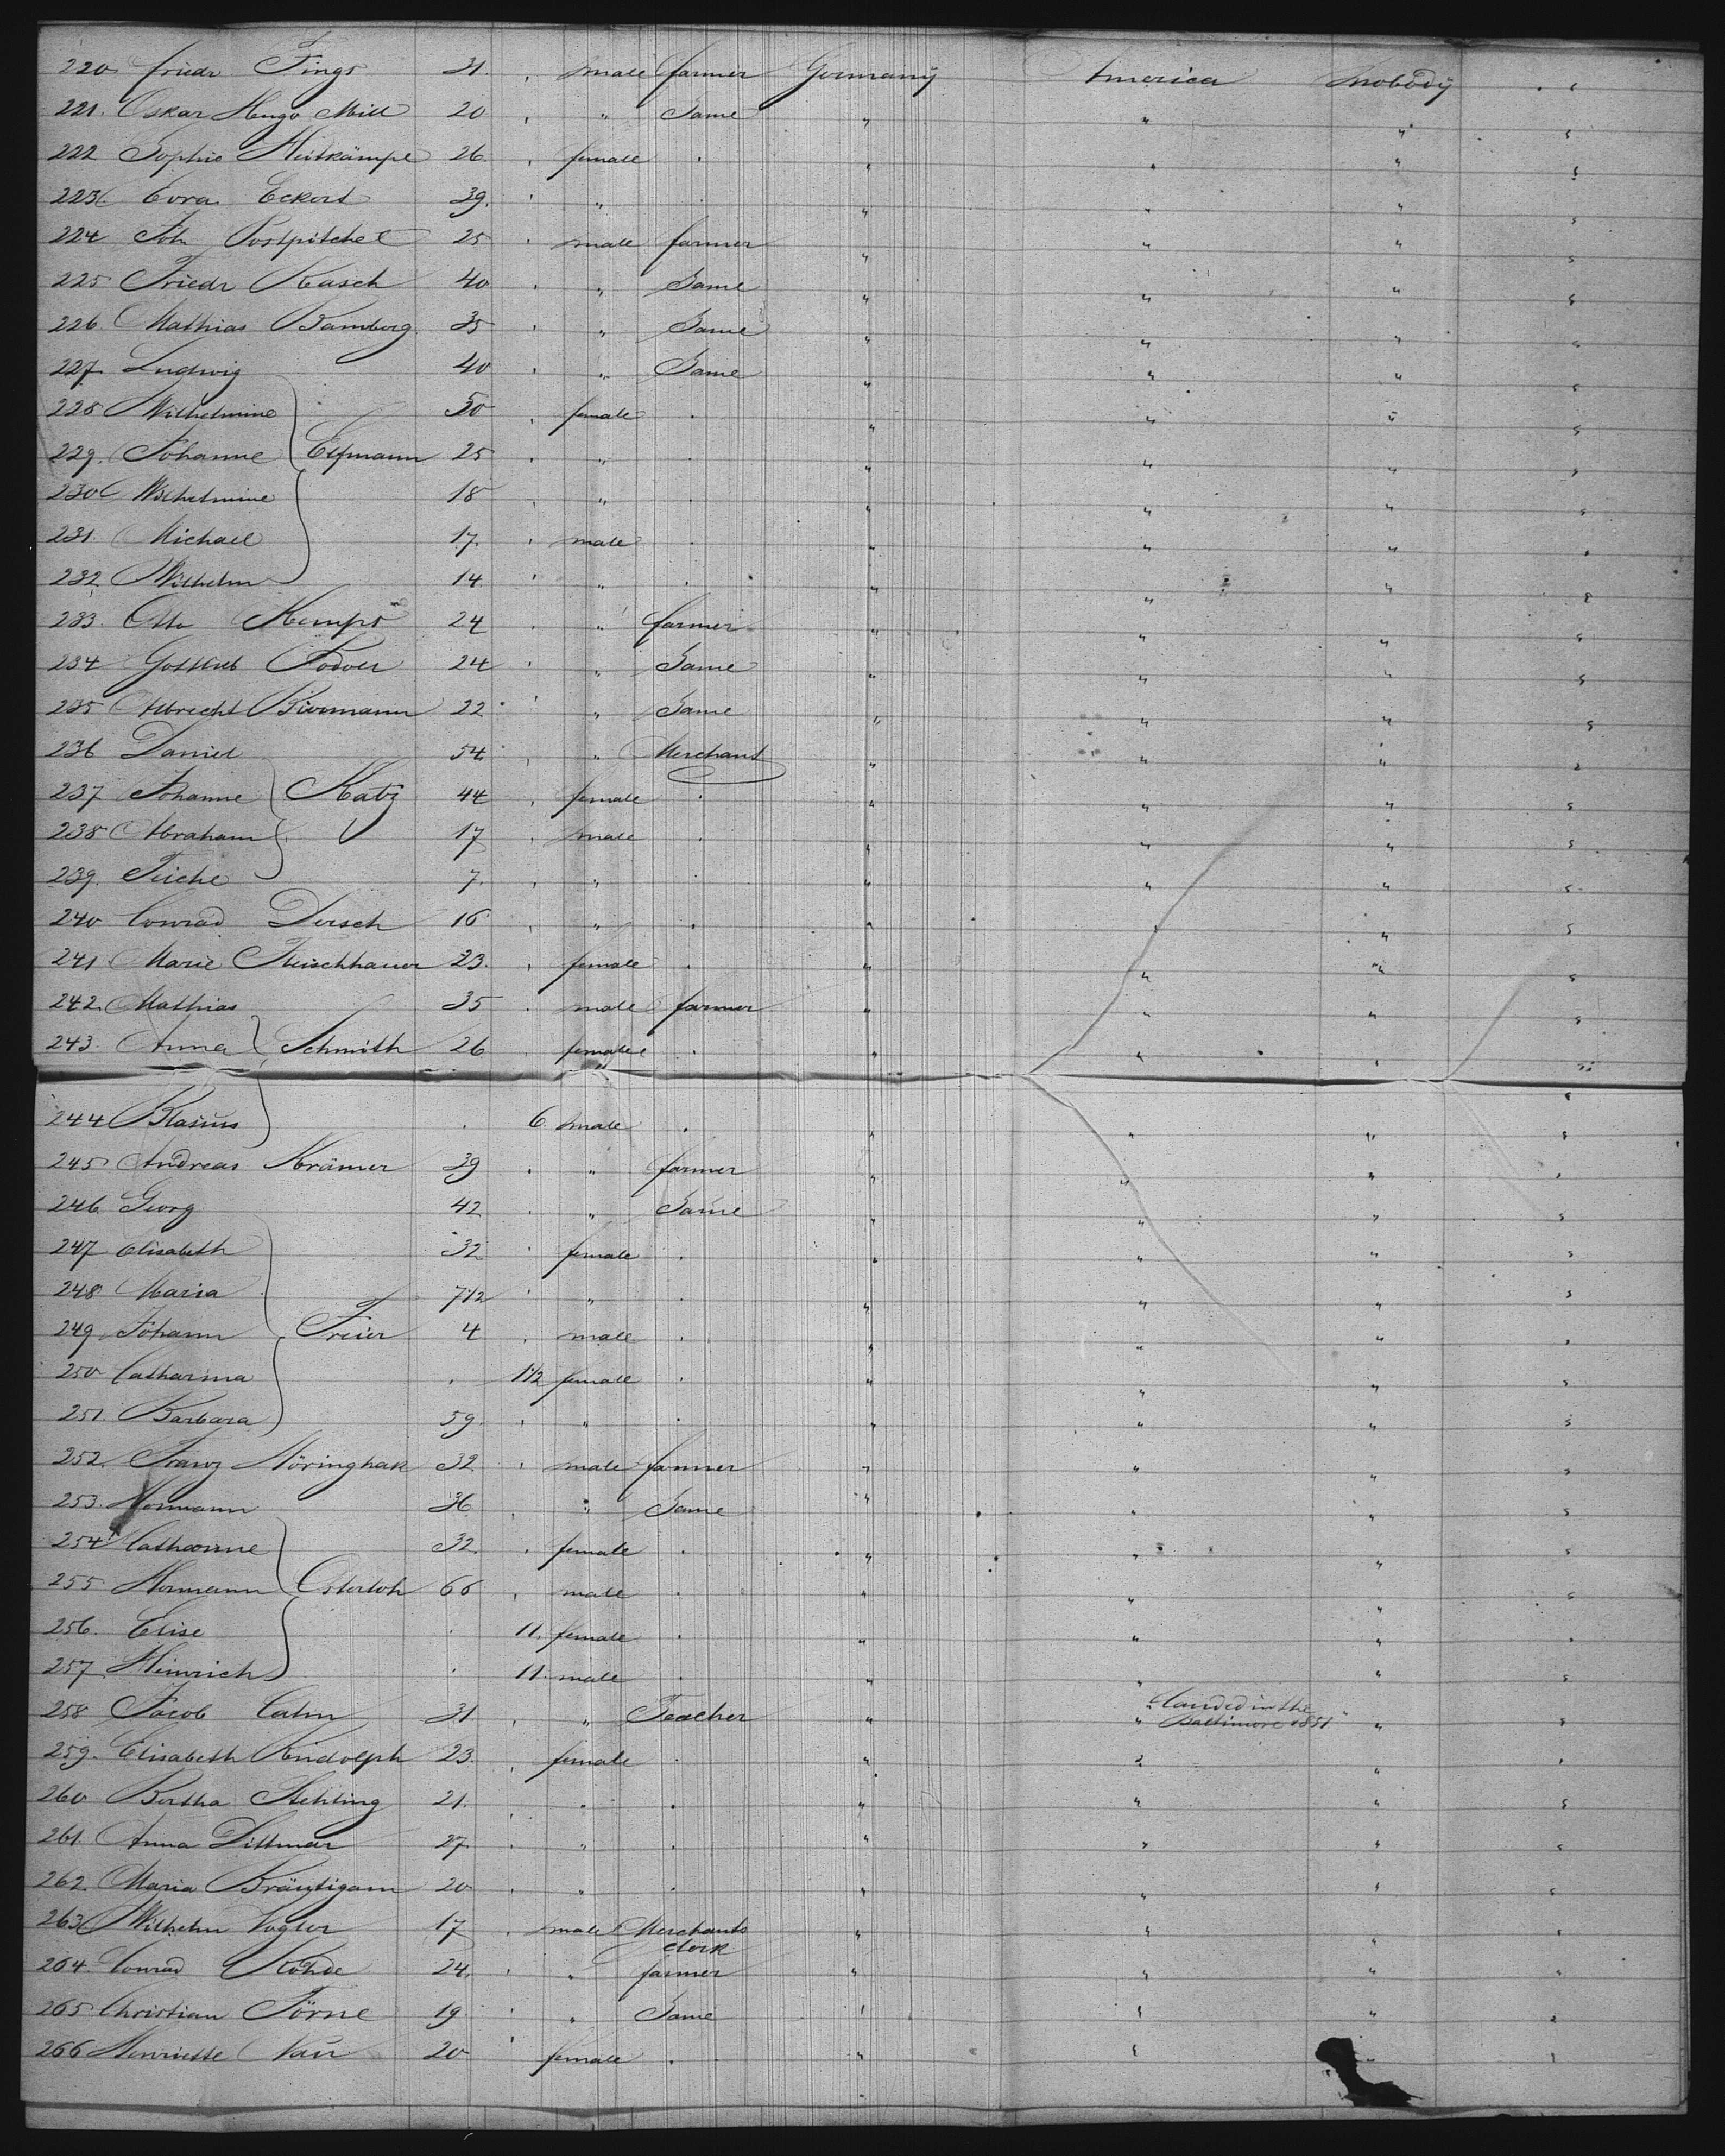 220 Friedr. Fings 31. male farmer Germany America nobody
221. Oskar Hugo Mill 20 " Same " " "
222 Sophie Heitkämpe 26. female " " "
223 Cora Eckert 39. " " " "
224 Joh Postpitchel 25 male farmer " " "
225 Friedr Kasch 40 " Same " " "
226 Mathias Bamberg 35 " Same " " "
227 Ludwig 40 " Same " " "
228 Wilhelmine 50 female " " "
229. Johanne Elfmann 25 " " " "
230 Wilhelmine 18 " " " "
231. Michael 17. male " " "
232 Wilhelm 14. " " " "
233. Otto Kemps 24 " farmer " " "
234 Gottlieb 24 " Same " " "
235 Albrecht Biermann 22 " Same " " "
236 Daniel 54 " Merchant " " "
237 Johanne Katz 44 female " " "
238 Abraham 17 male " " "
239. 7. " " " "
240 Conrad Dersch 16 " " " "
241 Marie Fleischhauer 23. female " " "
242. Mathias 35 male farmer " " "
243. Anna Schmith 26 female " " "
244 Blasius 6 male " " "
245 Andreas Krämer 39 " farmer " " "
246 Georg 42 " Same " " "
247 Elisabeth 32 female " " "
248 Maria 7 1/2 " " " "
249. Johann Freier 4 male " " "
250 Catharina 1 1/2 female " " "
251. Barbara 59. " " " "
252. Franz Höringhak 32 male farmer " " "
253. Hermann 36 " Same " " "
254 Catharine 32. female " " "
255 Hermann Osterloh 66 male " " "
256. Elise 11. female " " "
257 Heinrich 11. male " " "
258 Jacob Cahn 31 " Teacher " " landed in the "
Baltimore 1851
259. Elisabeth Rudolph 23. female " " "
260 Bertha Stehling 21. " " " "
261. Anna Dittmar 27. " " " "
262. Maria Bräutigam 20 " " " "
263 Wilhelm Vogler 17 male Merchants " " "
clerk
264. Conrad Rohde 24. " farmer " " "
265 Christian Törne 19 " Same " " "
266 Henriette Nau 20 female " " "